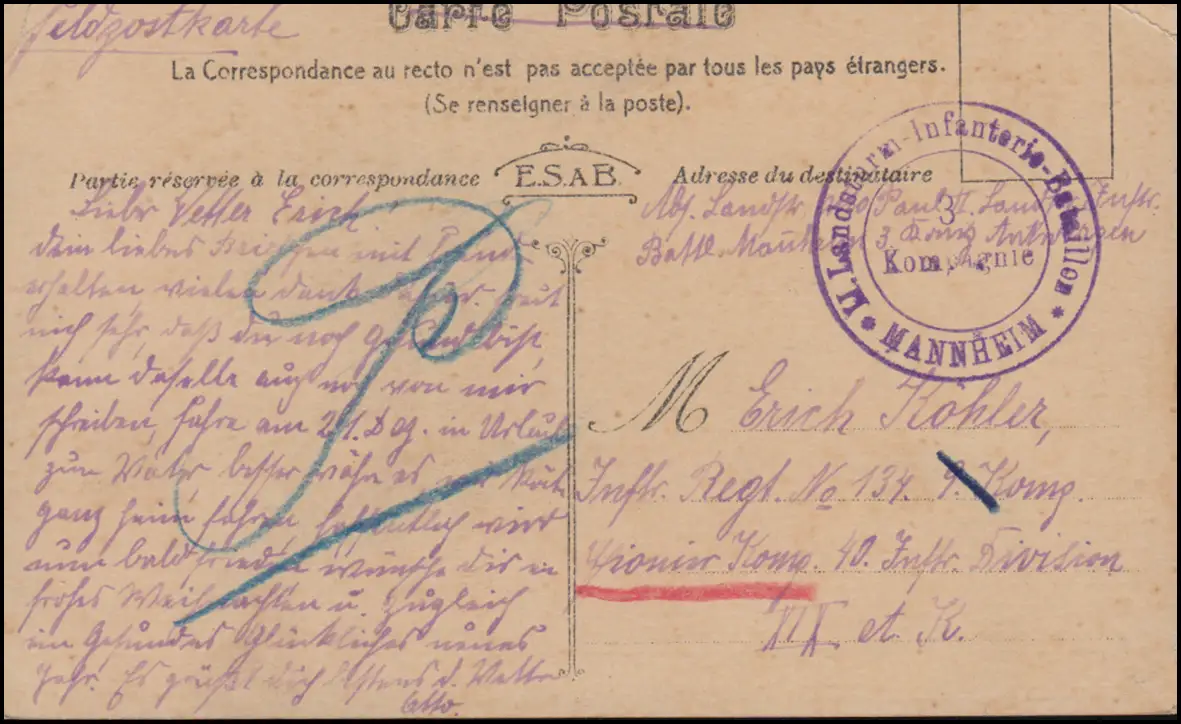 Feldpostkarte
Carte Postale
La Correspondance au recto n'est pas acceptée par tous les pays étrangers.
(Se renseigner à la poste).
Partie réservée à la correspondance
E.S.A.B.
Adresse du destinataire
Lieber Vetter Erich
dein liebes mit
erhalten vielen dank
mich sehr, daß du noch Gesund bist,
kann daselbe auch von mir
schreiben, fahre am 21. Dez. in Urlaub
zum Vater, besser wäre es wir
ganz heim fahren, hoffentlich wird
nun bald frieden wünsche dir ein
frohes Weihnachten u. zugleich
ein Gesundes Glückliches neues
Jahr. Es grüßt dich bestens d. Vetter
Otto.
Abs. Landstr. Otto Paul II. Landst. Inftr.
Batl. Mannheim 3. Komp. Antwerpen
II. Landsturm-Infanterie-Bataillon
* MANNHEIM *
3
Kompagnie
M Erich Köhler,
Inftr. Regt. No 134. 9. Komp.
Pionier Komp. 40. Inftr. Division
XIX et. K.